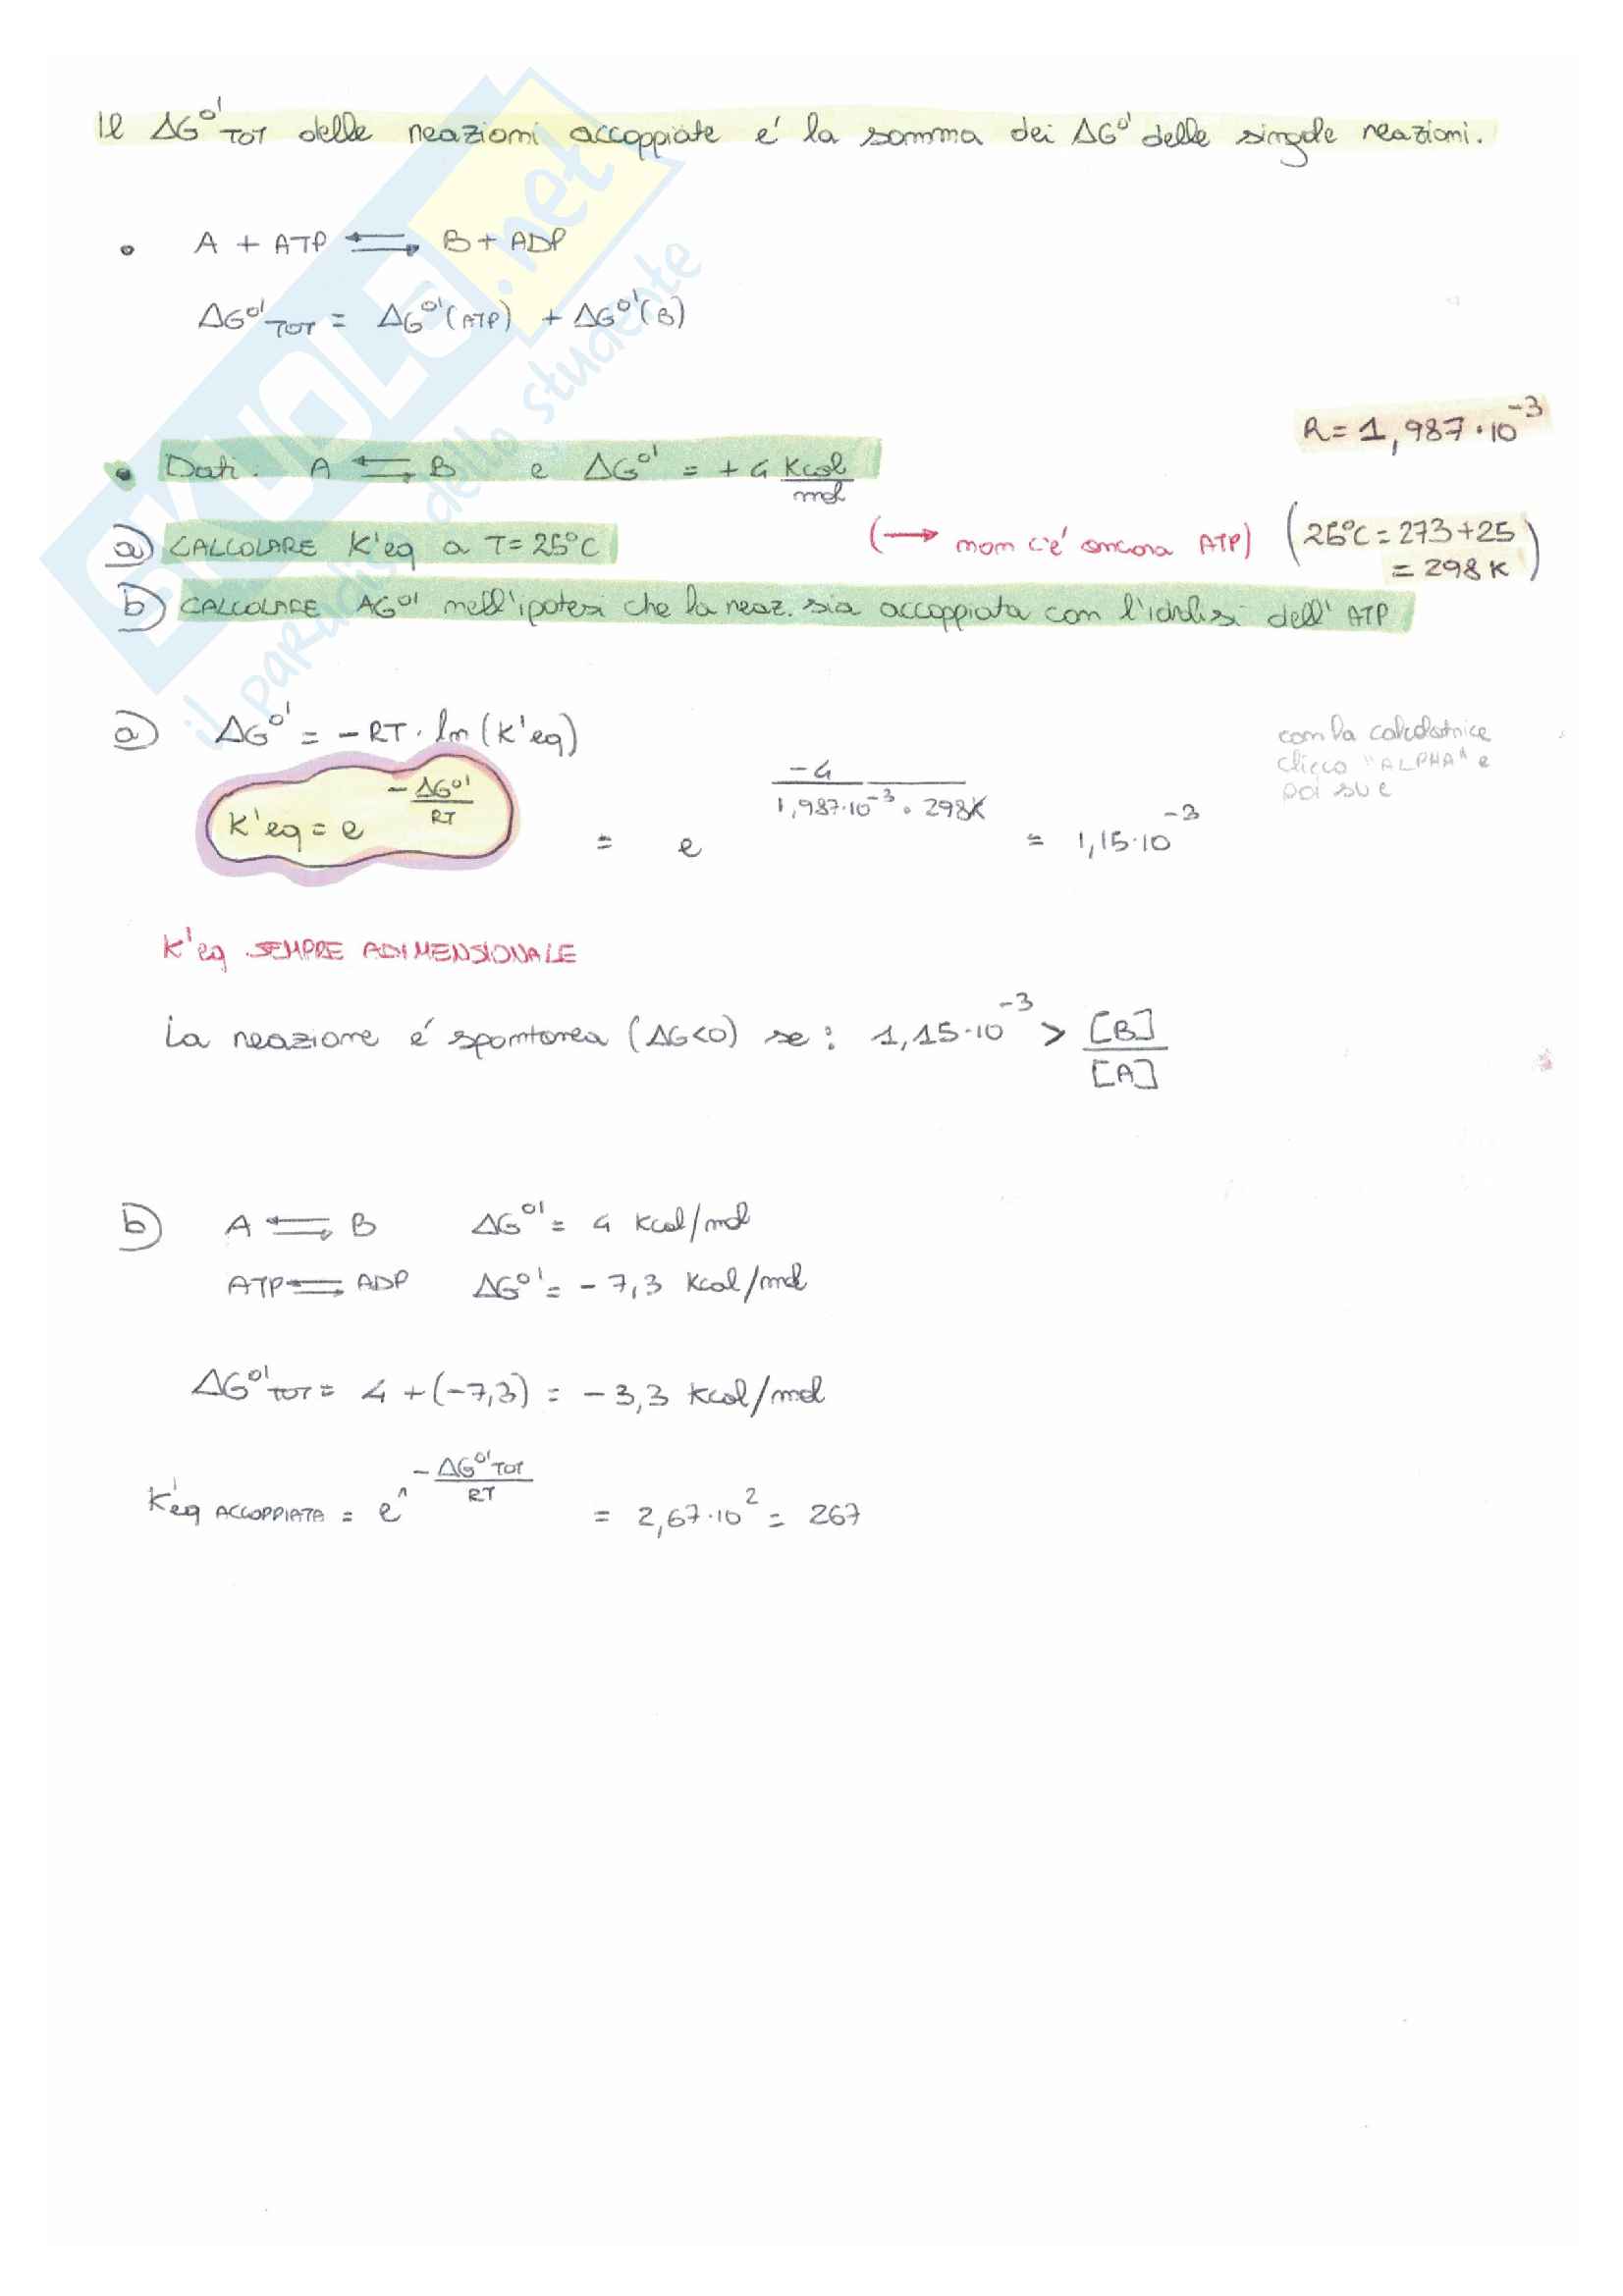 Il ΔG°'TOT delle reazioni accoppiate e' la somma dei ΔG°' delle singole reazioni.
• A + ATP ⇌ B + ADP
ΔG°'TOT = ΔG°'(ATP) + ΔG°'(B)
R = 1,987·10^-3
• Dati: A ⇌ B e ΔG°' = + 4 Kcal/mol
a) CALCOLARE K'eq a T = 25°C (→ non c'é ancora ATP) (25°C = 273+25
= 298 K)
b) CALCOLARE ΔG°' nell'ipotesi che la reaz. sia accoppiata con l'idrolisi dell'ATP
a) ΔG°' = -RT · ln (K'eq)
con la calcolatrice
clicco "ALPHA" e
poi su e
K'eq = e^(-ΔG°'/RT) = e^(-4/(1,987·10^-3 · 298K)) = 1,15·10^-3
K'eq SEMPRE ADIMENSIONALE
La reazione é spontanea (ΔG<0) se: 1,15·10^-3 > [B]/[A]
b) A ⇌ B ΔG°' = 4 Kcal/mol
ATP ⇌ ADP ΔG°' = - 7,3 Kcal/mol
ΔG°'TOT = 4 + (-7,3) = - 3,3 Kcal/mol
K'eq ACCOPPIATA = e^(-ΔG°'TOT/RT) = 2,67·10^2 = 267
SKUOLA.net
il paradiso dello studente